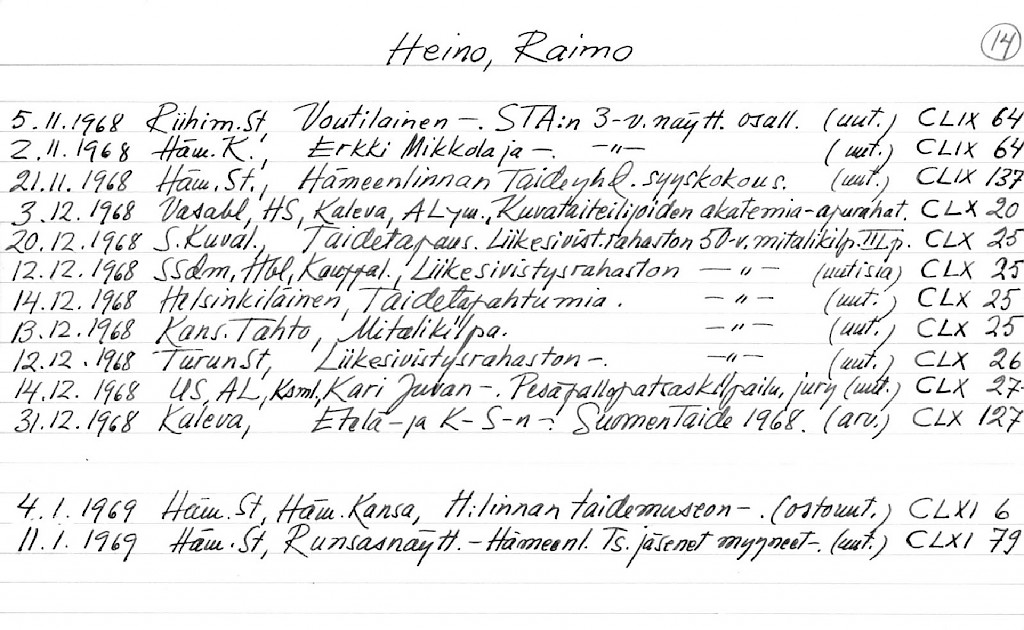 Heino, Raimo
14
5.11.1968 Riihim.St, Voutilainen -. STA:n 3-v.näytt. osall. (uut.) CLIX 64
2.11.1968 Häm.K., Erkki Mikkola ja -. -"- (uut.) CLIX 64
21.11.1968 Häm.St., Hämeenlinnan Taideyhd. syyskokous. (uut.) CLIX 137
3.12.1968 Vasabl, HS, Kaleva, AL ym., Kuvataiteilijoiden akatemia-apurahat. CLX 20
20.12.1968 S.Kuval., Taidetapaus. Liikesivist.rahaston 50-v.mitalikilp. II p. CLX 25
12.12.1968 SSdm, Hbl, Kauppal., Liikesivistysrahaston -"- (uutisia) CLX 25
14.12.1968 Helsinkiläinen, Taidetapahtumia. -"- (uut.) CLX 25
13.12.1968 Kans.Tahto, Mitalikilpa. -"- (uut.) CLX 25
12.12.1968 TurunSt, Liikesivistysrahaston -. -"- (uut.) CLX 26
14.12.1968 US, AL, Ksml, Kari Juvan -. Pesäpallopatsaskilpailu, jury (uut.) CLX 27
31.12.1968 Kaleva, Etelä- ja K-S-n -. Suomen Taide 1968. (arv.) CLX 127
4.1.1969 Häm.St, Häm.Kansa, H:linnan taidemuseon -. (ostouut.) CLXI 6
11.1.1969 Häm.St, Runsasnäytt. - Hämeenl. Ts. jäsenet myyneet -. (uut.) CLXI 79